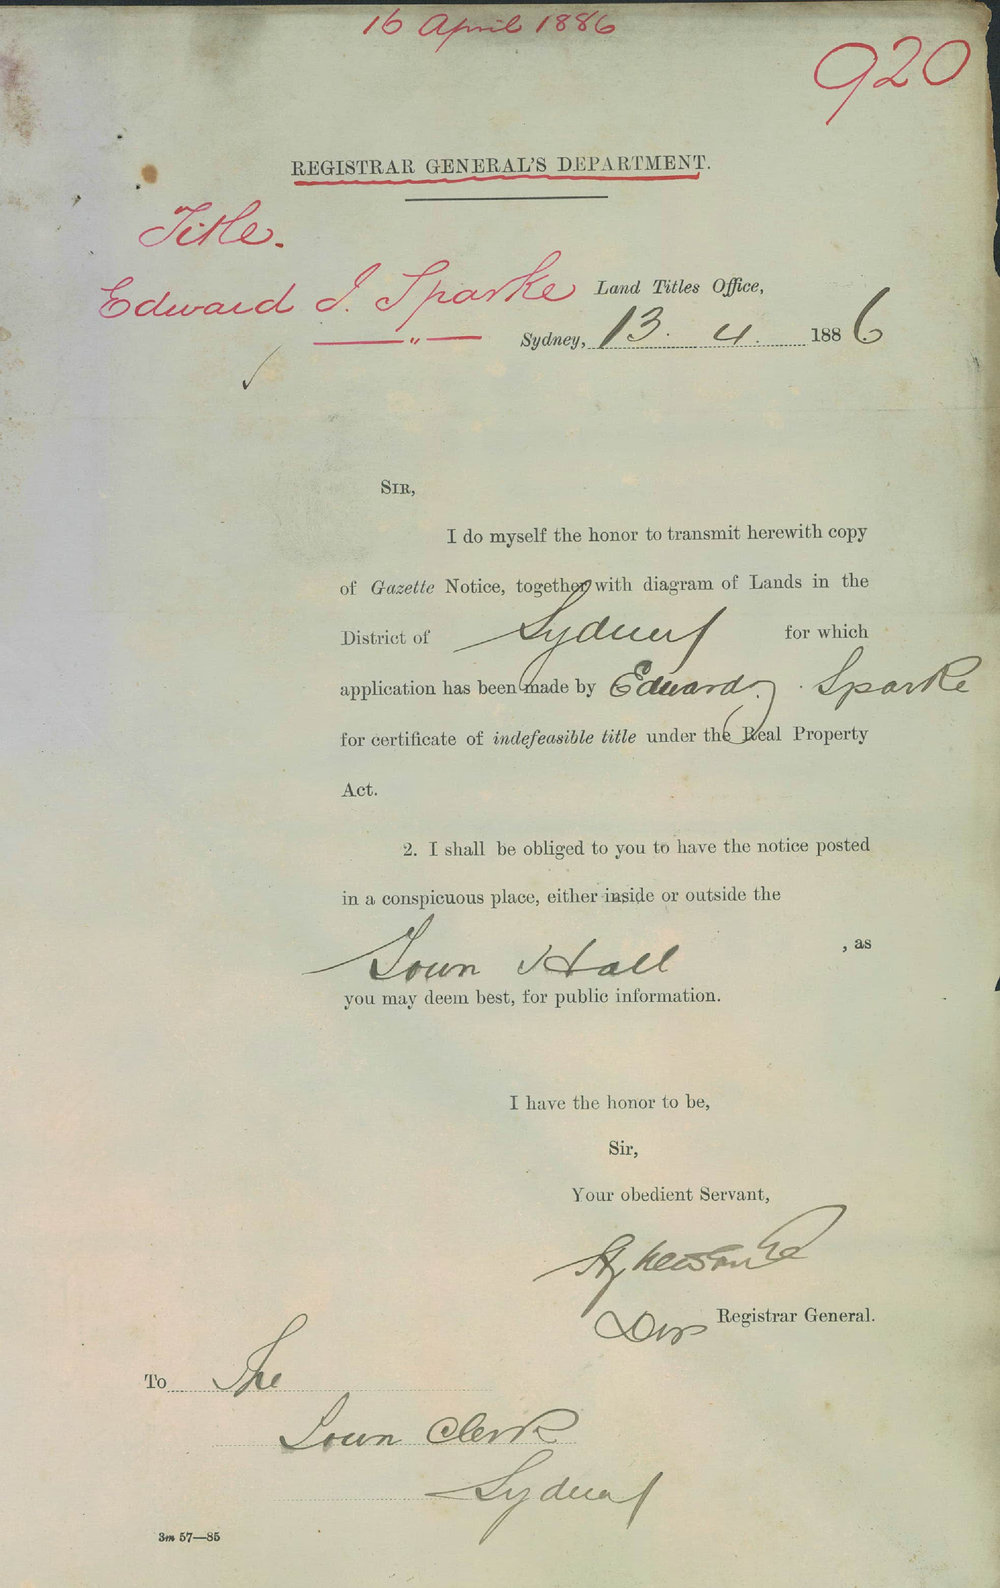 16 April 1886
920
REGISTRAR GENERAL'S DEPARTMENT.
Title.
Edward J. Sparke
Land Titles Office,
Sydney, 13. 4. 1886
SIR,
I do myself the honor to transmit herewith copy
of Gazette Notice, together with diagram of Lands in the
District of Sydney for which
application has been made by Edward J. Sparke
for certificate of indefeasible title under the Real Property
Act.
2. I shall be obliged to you to have the notice posted
in a conspicuous place, either inside or outside the
Town Hall , as
you may deem best, for public information.
I have the honor to be,
Sir,
Your obedient Servant,
Registrar General.
To The
Town Clerk
Sydney
3m 57—85